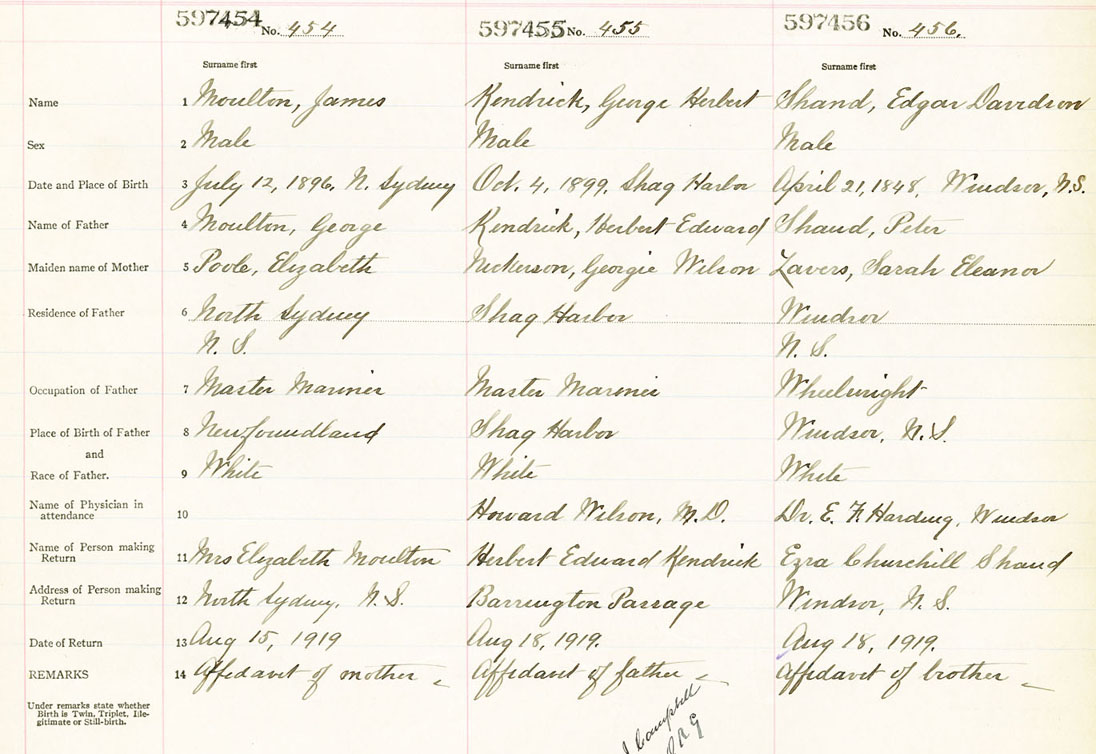 597454 No. 454 597455 No. 455 597456 No. 456.
Surname first Surname first Surname first
Name 1 Moulton, James Kendrick, George Herbert Shand, Edgar Davidson
Sex 2 Male Male Male
Date and Place of Birth 3 July 12, 1896, N. Sydney Oct. 4, 1899, Shag Harbor April 21, 1848, Windsor, N.S.
Name of Father 4 Moulton, George Kendrick, Herbert Edward Shand, Peter
Maiden name of Mother 5 Poole, Elizabeth Nickerson, Georgie Wilson Lavers, Sarah Eleanor
Residence of Father 6 North Sydney Shag Harbor Windsor
N. S. N. S.
Occupation of Father 7 Master Mariner Master Mariner Wheelwright
Place of Birth of Father 8 Newfoundland Shag Harbor Windsor, N.S.
and
Race of Father. 9 White White White
Name of Physician in
attendance 10 Howard Wilson, M.D. Dr. E. F. Harding, Windsor
Name of Person making
Return 11 Mrs Elizabeth Moulton Herbert Edward Kendrick Ezra Churchill Shand
Address of Person making
Return 12 North Sydney, N.S. Barrington Passage Windsor, N.S.
Date of Return 13 Aug 15, 1919 Aug 18, 1919. Aug 18, 1919.
REMARKS 14 Affidavit of mother Affidavit of father Affidavit of brother
Under remarks state whether
Birth is Twin, Triplet, Ille-
gitimate or Still-birth.
Campbell